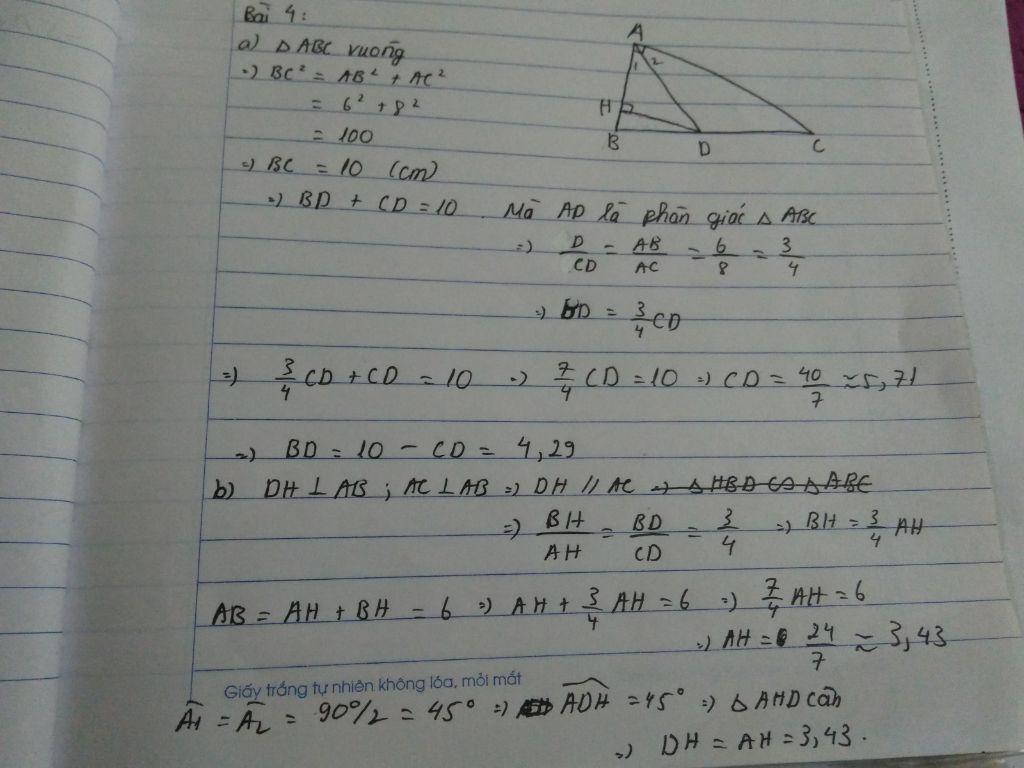 Bài 4:
a) △ ABC vuông
=) BC² = AB² + AC²
= 6² + 8²
= 100
=) BC = 10 (cm)
=) BD + CD = 10. Mà AD là phân giác △ ABC
=) D/CD = AB/AC = 6/8 = 3/4
=) BD = 3/4 CD
=) 3/4 CD + CD = 10 =) 7/4 CD = 10 =) CD = 40/7 ≈ 5,71
=) BD = 10 - CD = 4,29
b) DH ⊥ AB ; AC ⊥ AB =) DH // AC =) △ HBD ∽ △ ABC
=) BH/AH = BD/CD = 3/4 =) BH = 3/4 AH
AB = AH + BH = 6 =) AH + 3/4 AH = 6 =) 7/4 AH = 6
=) AH = 24/7 ≈ 3,43
Giấy trắng tự nhiên không lóa, mỏi mắt
Â1 = Â2 = 90°/2 = 45° =) ADH = 45° =) △ AHD cân
=) DH = AH = 3,43.
A
1 2
H
B D C